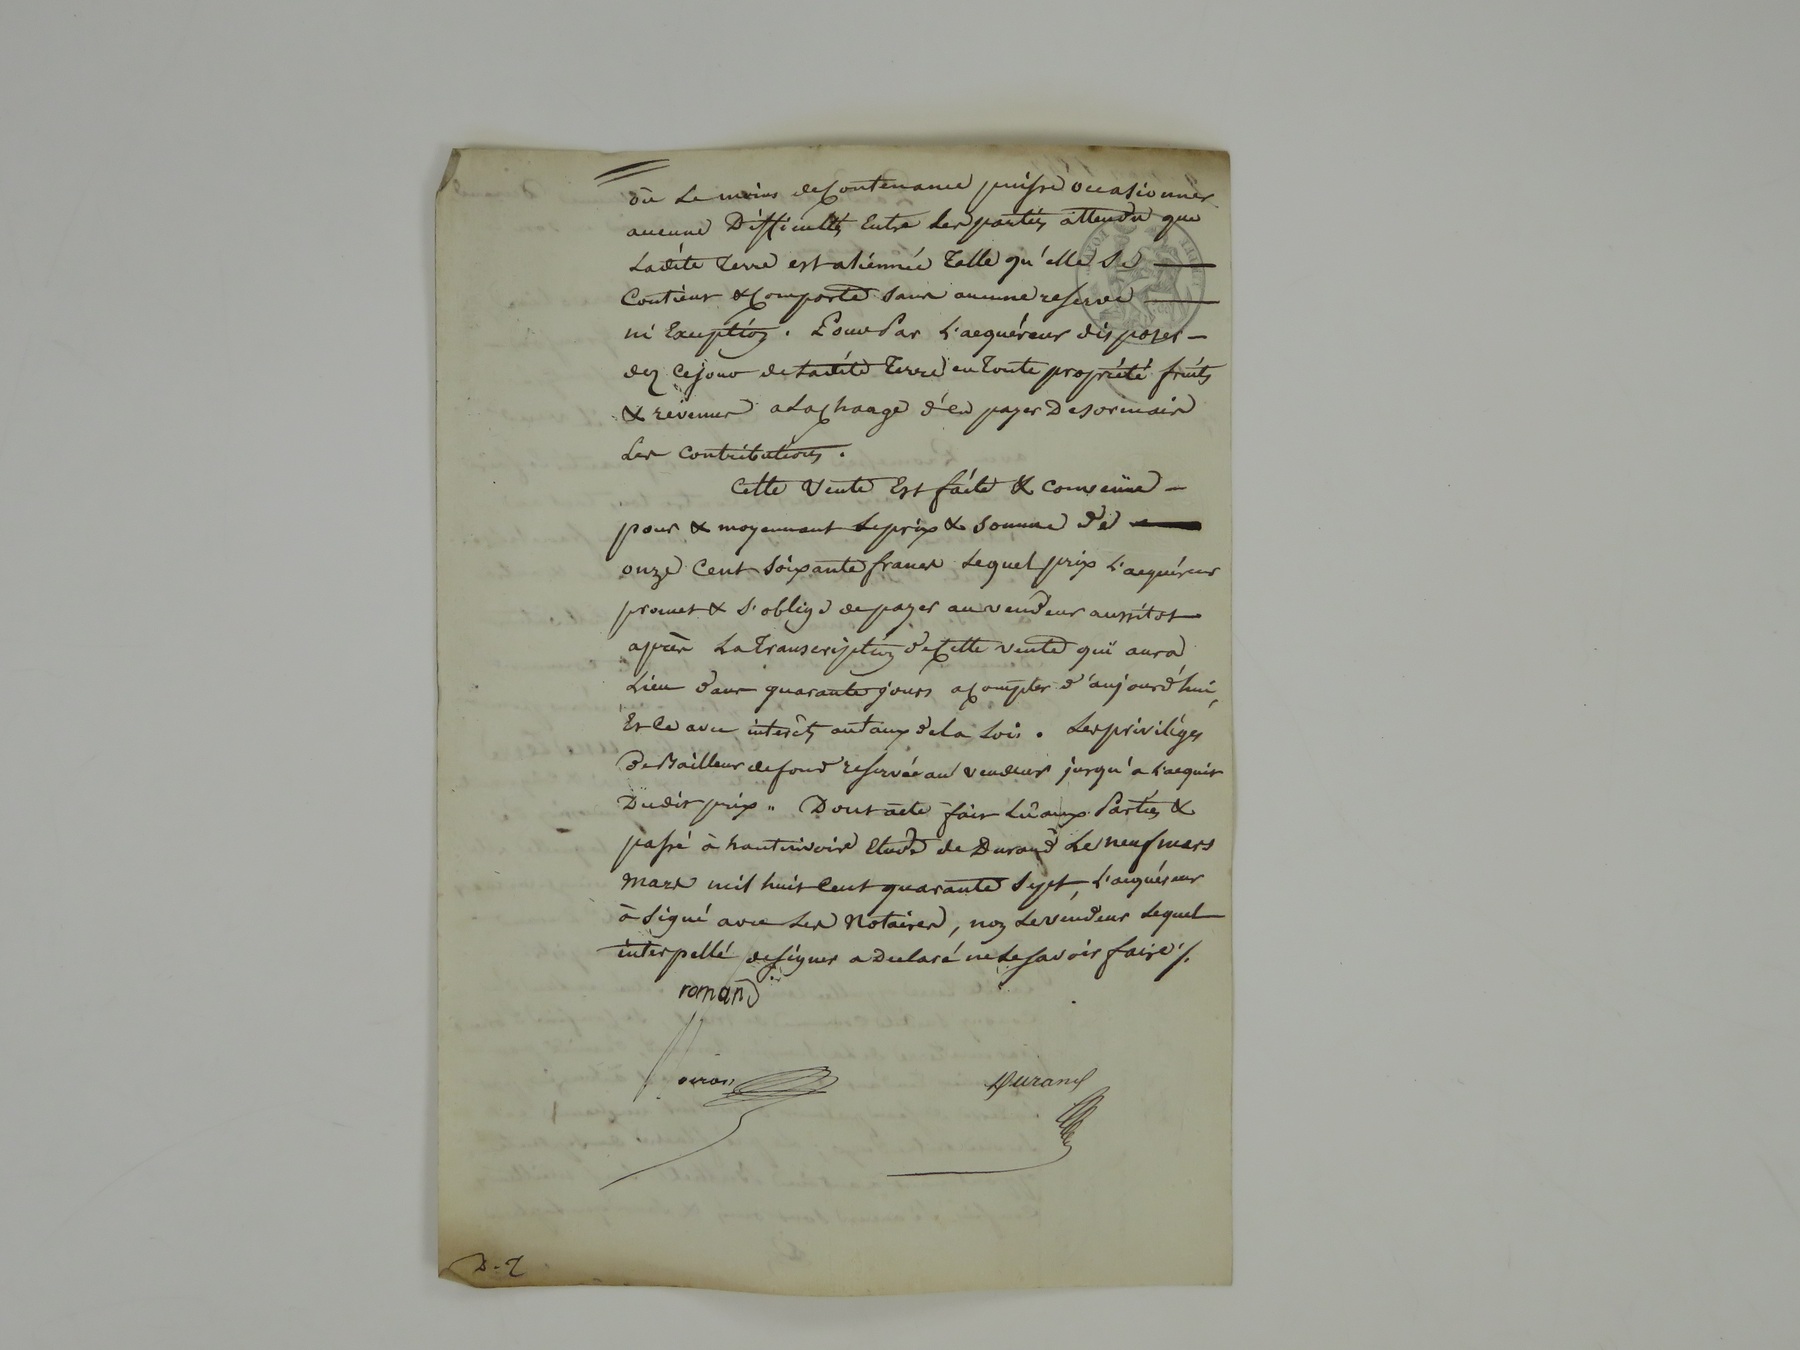 ou le moins de contenance puisse occasionner
aucune difficultés entre les parties attendu que
ladite terre est aliennée telle qu'elle se
contient & comporte sans aucune reserve
ni exception. Pour par l'acquéreur disposer
dez ce jour de ladite terre en toute propriété fruits
& revenus a la charge d'en payer desormais
les contributions.
Cette vente est faite & consenue
pour & moyennant le prix & somme de
onze cent soixante francs lequel prix l'acquéreur
promet & s'oblige de payer au vendeur aussitot
après la transcription de cette vente qui aura
lieu dans quarante jours a compter d'aujourd'hui,
et ce avec intérêts au taux de la loi. Les priviléges
de bailleur de fond reservée au vendeur jusqu'a l'acquit
dudit prix. Dont acte fait lû aux parties &
passé à hauterivoire etude de Durand le neuf mars
mars mil huit cent quarante sept, l'acquéreur
à signé avec les notaires, non le vendeur lequel
interpellé de signer a declaré ne le savoir faire ./.
romand
Durand
D-2